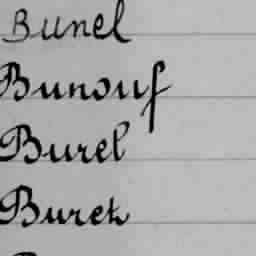 Bunel
Bunouf
Burel
Buret